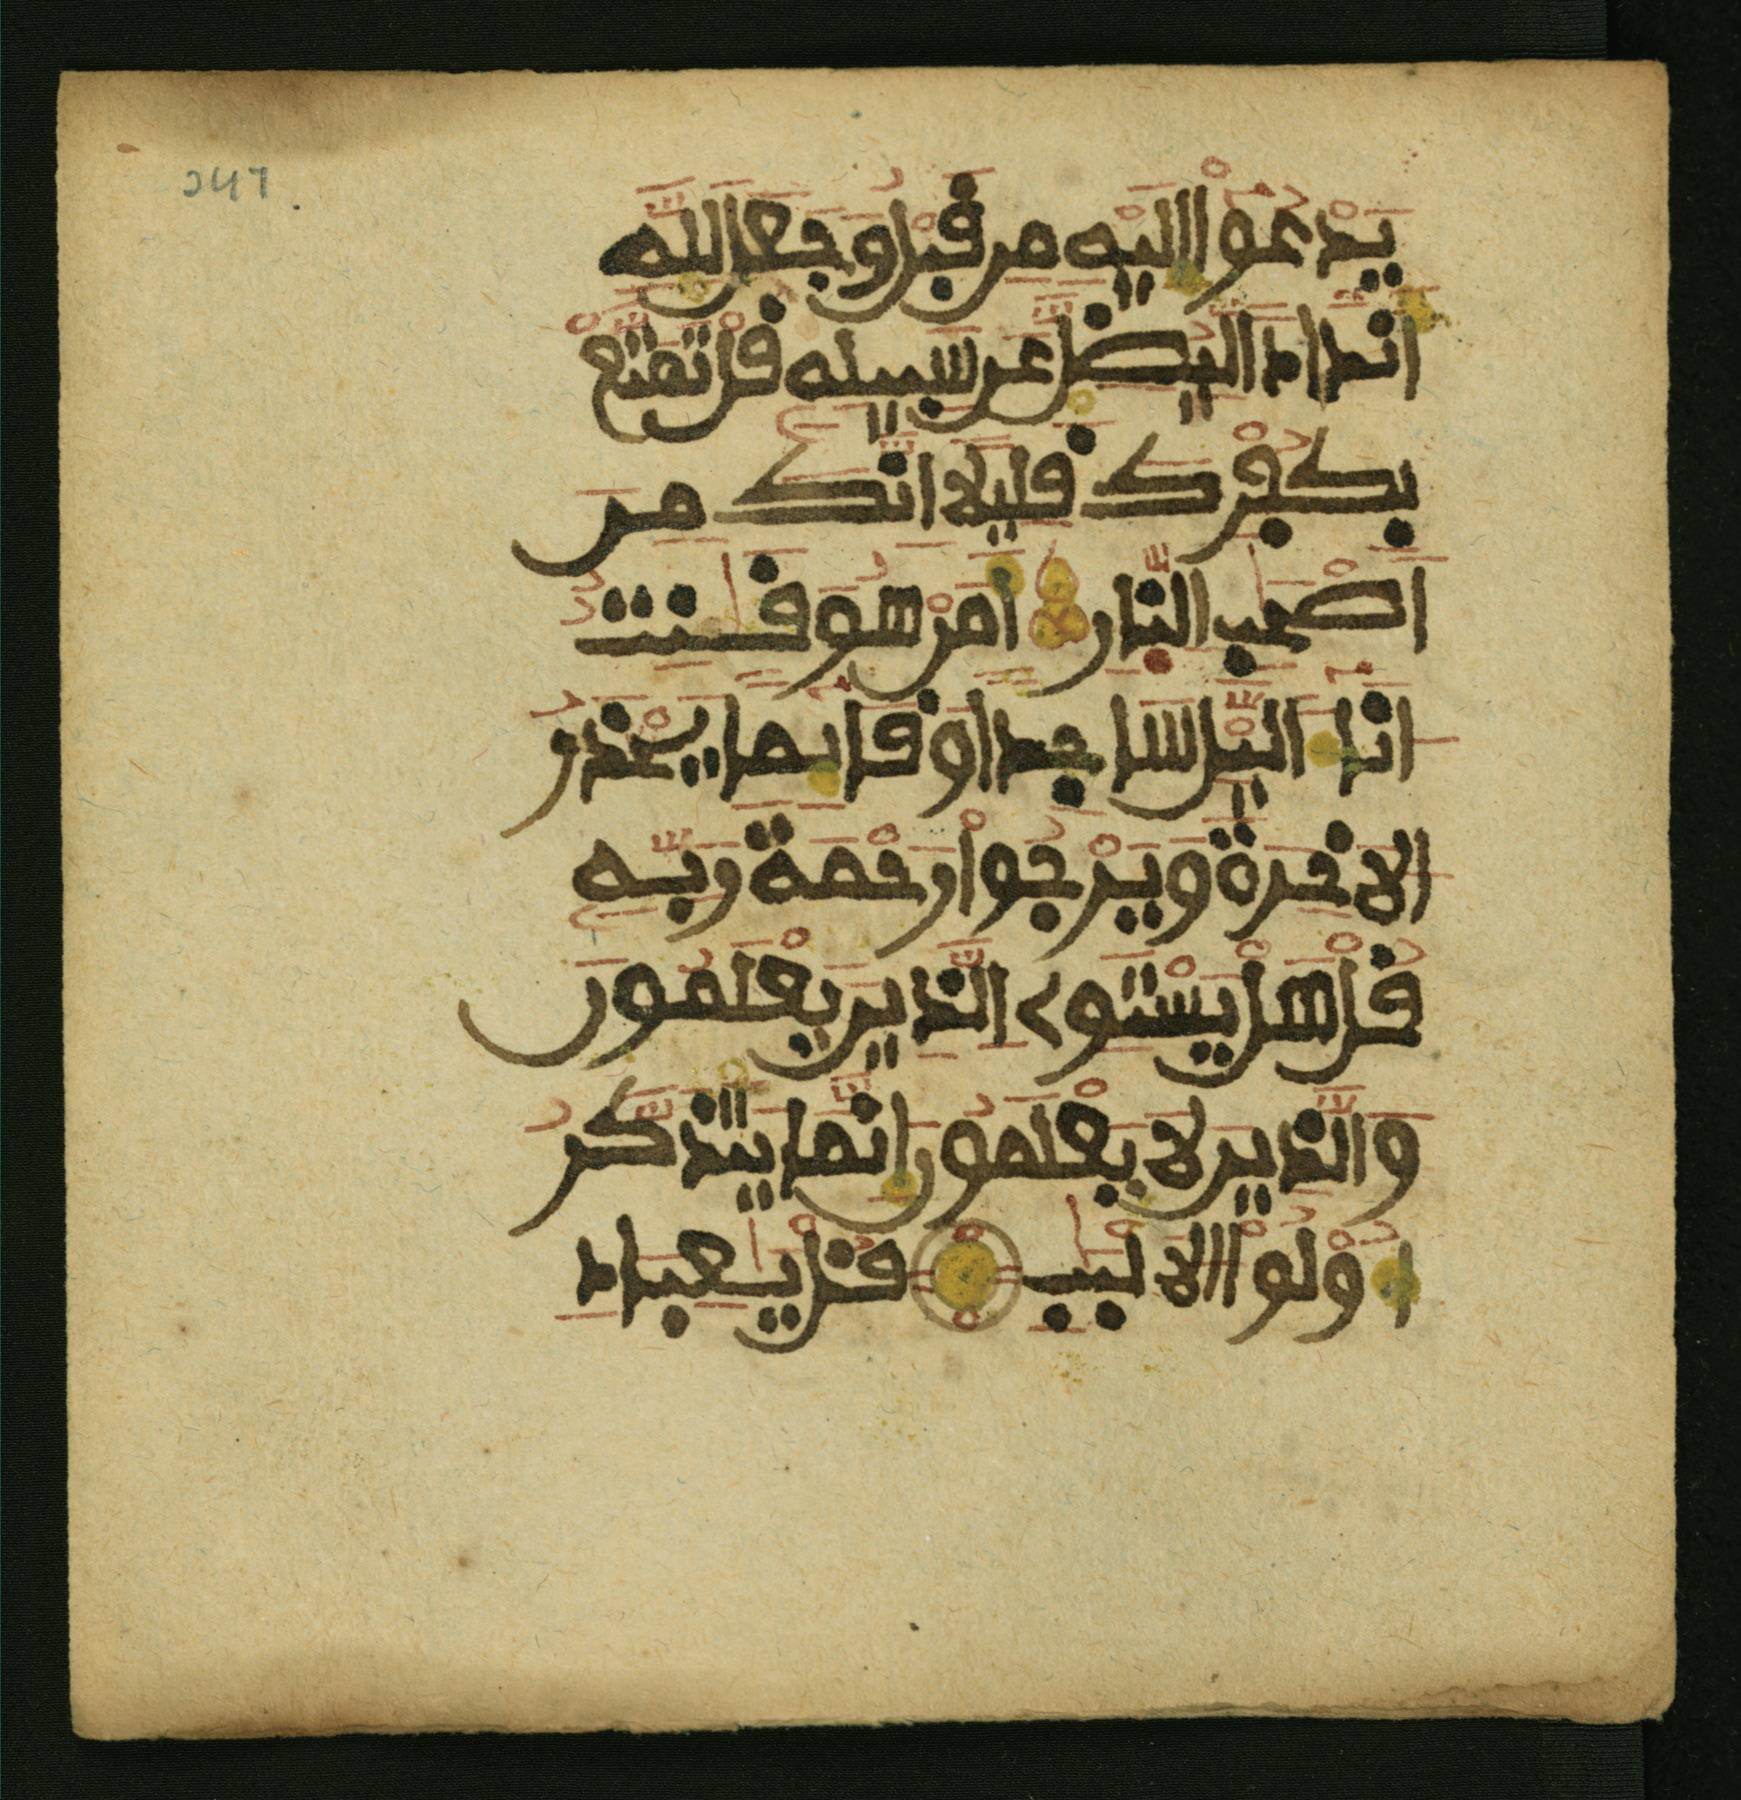 247
يَدْعُوْا اِلَيْهِ مِن قَبْلُ وَجَعَلَ لِلَّهِ
اَندَادًا لِّيُضِلَّ عَن سَبِيلِهِ قُلْ تَمَتَّعْ
بِكُفْرِكَ قَلِيلًا اِنَّكَ مِنَ
اَصْحٰبِ النَّارِ اَمَنْ هُوَ قٰنِتٌ
اٰنَاءَ الَّيْلِ سَاجِدًا وَقَائِمًا يَحْذَرُ
الَاخِرَةَ وَيَرْجُواْ رَحْمَةَ رَبِّهِ
قُلْ هَلْ يَسْتَوِے الَّذِينَ يَعْلَمُونَ
وَالَّذِينَ لَا يَعْلَمُونَ اِنَّمَا يَتَذَكَّرُ
اُوْلُوْا الَالْبٰبِ قُلْ يٰعِبَادِ